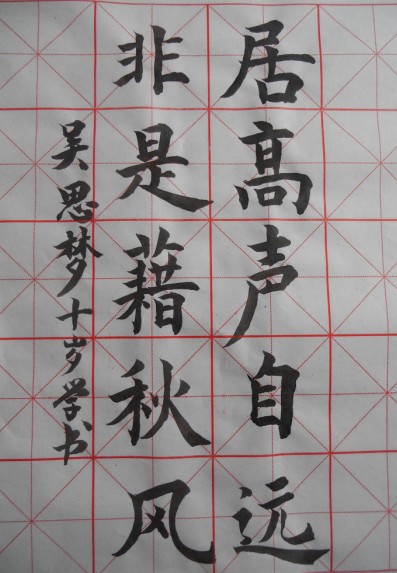 居高声自远
非是藉秋风
吴思梦十岁学书